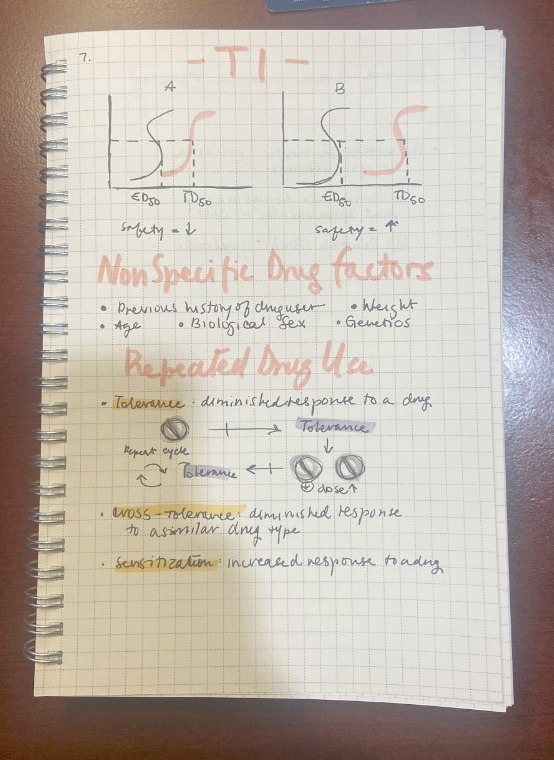 7.
- TI -
A B
ED50 TD50 ED50 TD50
Safety = ↓ Safety = ↑
NonSpecific Drug factors
• Previous history of drug user • Weight
• Age • Biological Sex • Genetics
Repeated Drug Use
• Tolerance: diminished response to a drug
Tolerance
Repeat cycle
Tolerance
⊕ dose↑
• cross-tolerance: diminished response
to a similar drug type
• sensitization: increased response to a drug